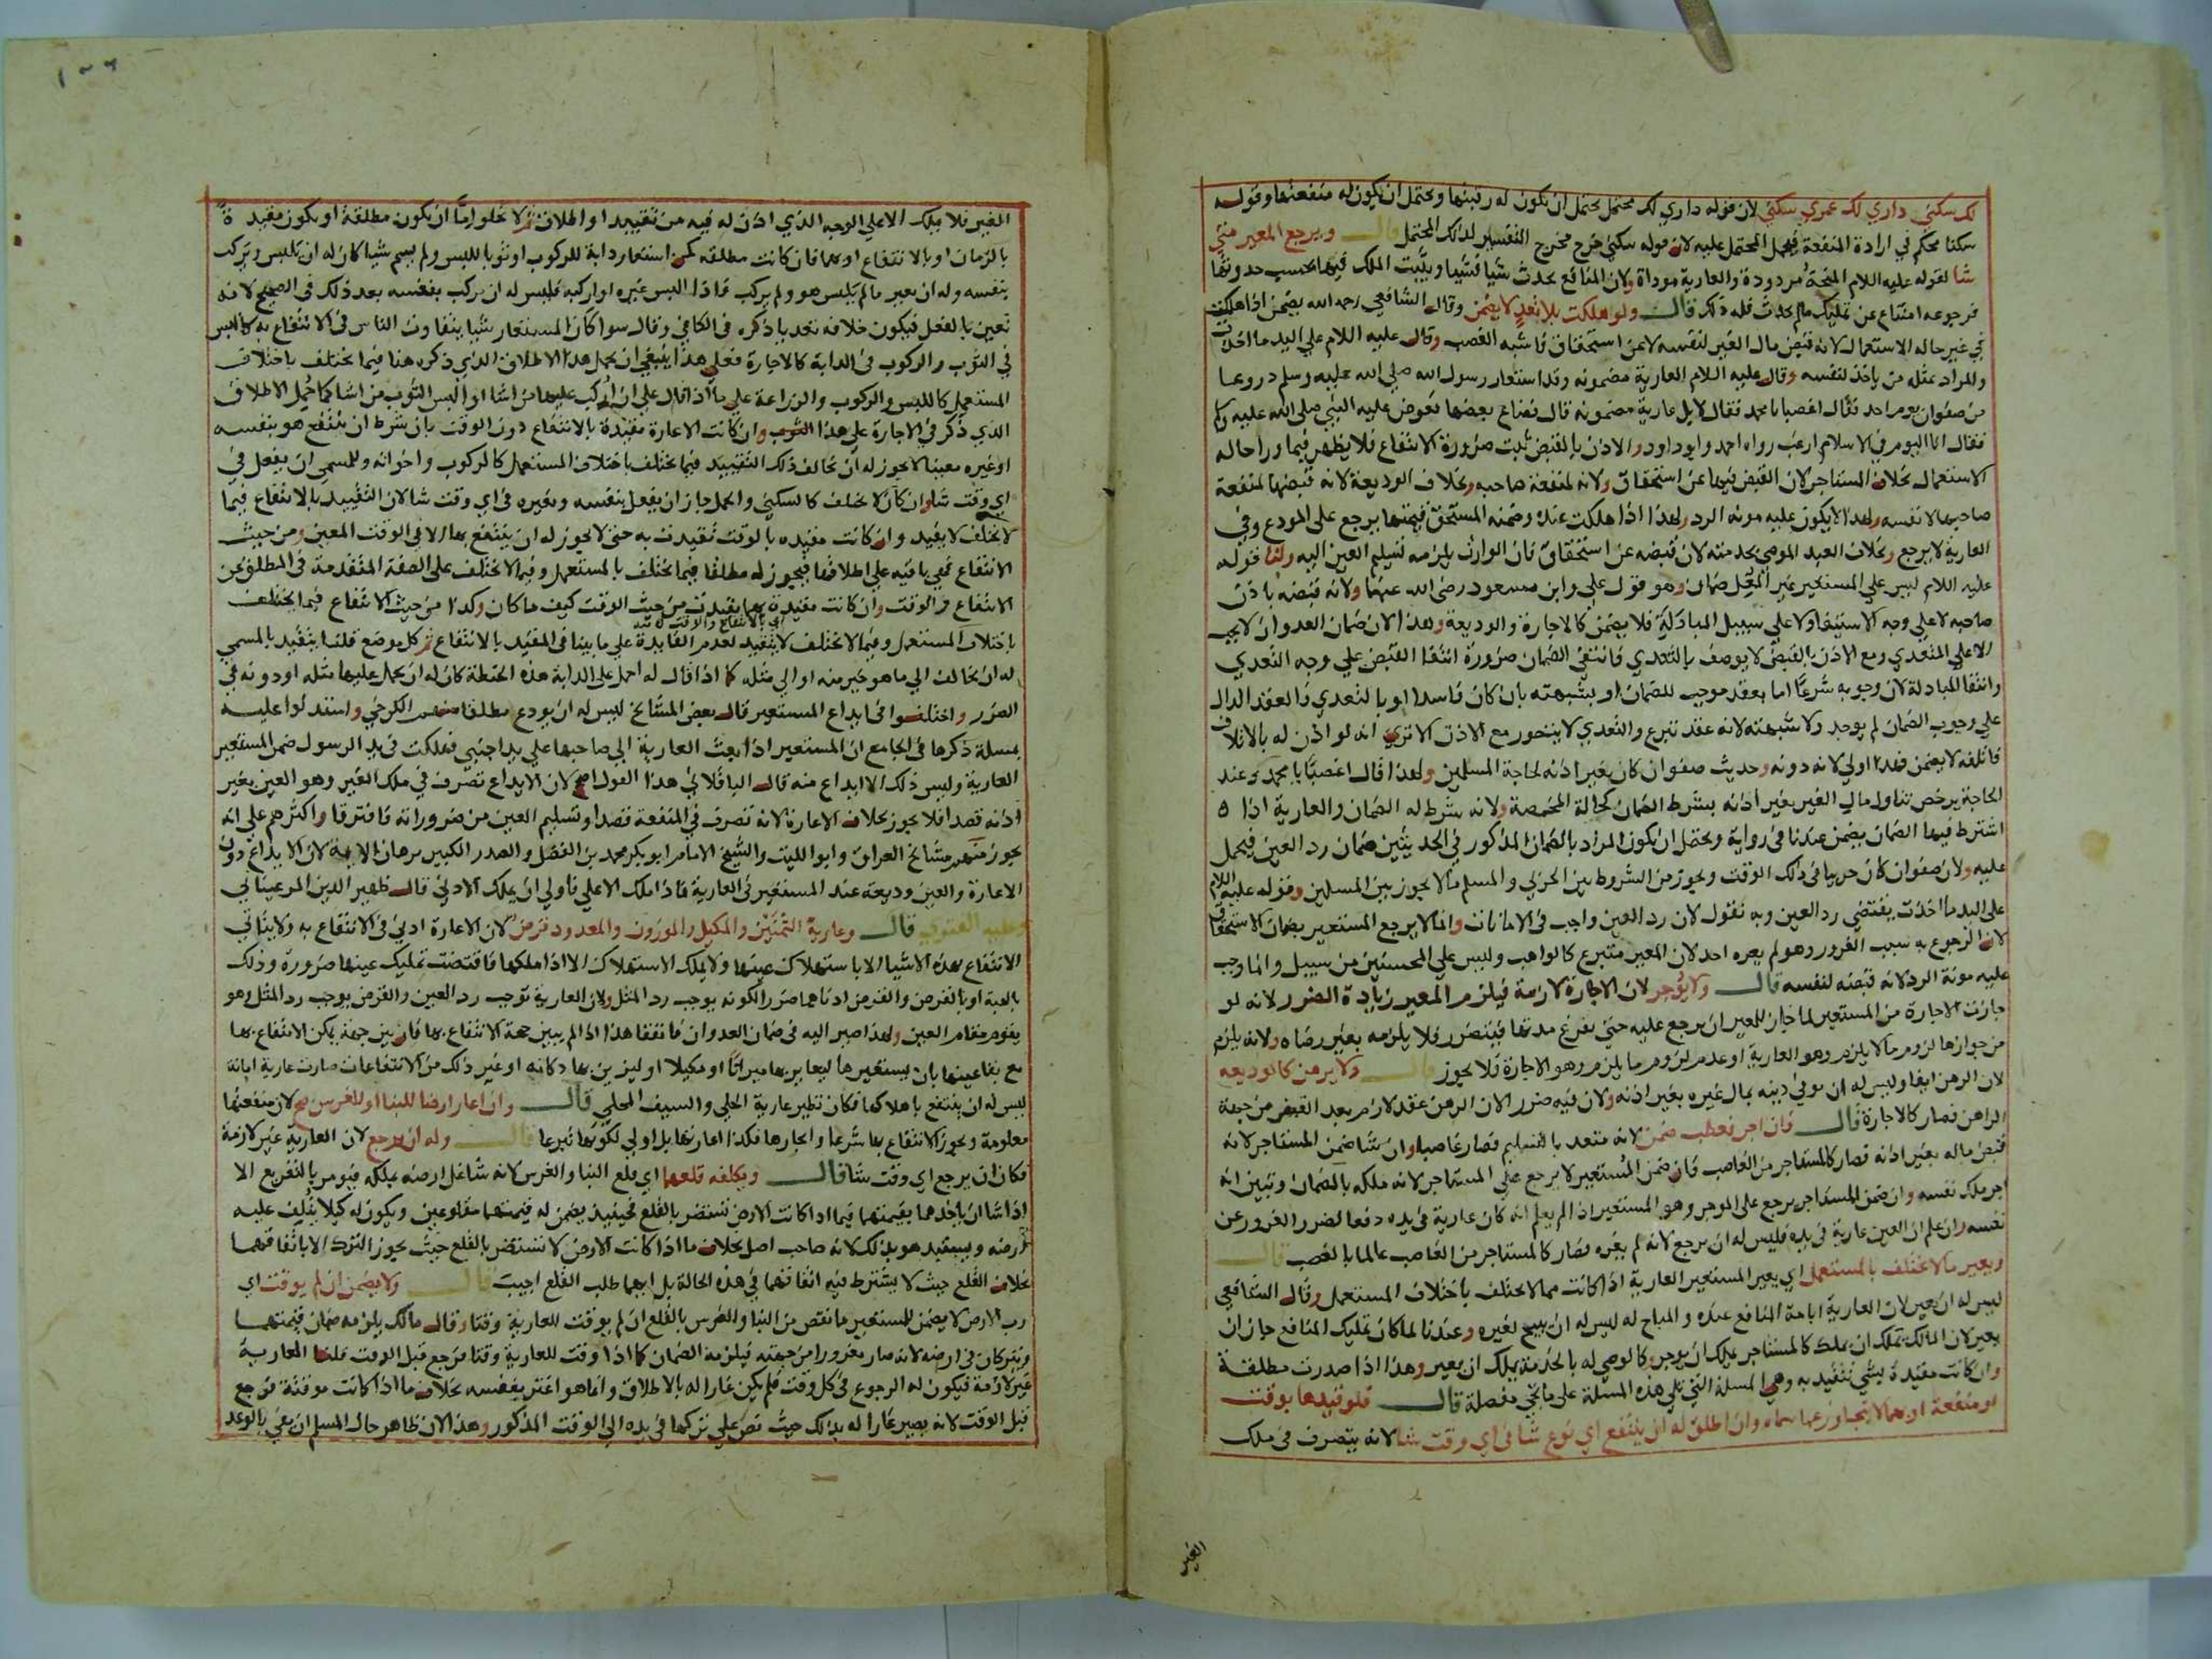 لك سكني داري لك عمري سكني لان قوله داري لك محتمل يحتمل ان يكون له رقبتها ويحتمل ان يكون له منفعتها وقوله
سكنا محكم في ارادة المنفعة فيحمل المحتمل عليه لان قوله سكني خرج مخرج التفسير لذلك المحتمل قال ويرجع المعير متي
شا لقوله عليه السلام المنحة مردودة والعارية موداة ولان المنافع تحدث شيا فشيا ويثبت الملك فيها بحسب حدوثها
فرجوعه امتناع عن تمليك ما لم يحدث فله ذلك قال ولو هلكت بلا تعد لا يضمن وقال الشافعي رحمه الله يضمن اذا هلكت
في غير حاله الاستعمال لانه قبض مال الغير لنفسه لا عن استحقاق فاشبه الغصب وقال عليه السلام علي اليد ما اخذت
والمراد عنده من ياخذ لنفسه وقال عليه السلام العارية مضمونه وقد استعار رسول الله صلي الله عليه وسلم دروعا
من صفوان يوم احد فقال اغصبا يا محمد فقال لا بل عارية مضمونه قال فضاع بعضها فعرض عليه النبي صلي الله عليه وسلم
فقال انا اليوم في الاسلام ارغب رواه احمد وابو داود والاذن بالقبض ثبت ضرورة الانتفاع فلا يظهر فيما ورا حاله
الاستعمال بخلاف المستاجر لان القبض فيها عن استحقاق ولانه لمنفعة صاحبه وبخلاف الوديعة لانه قبضها لمنفعة
صاحبها لا نفسه ولهذا لا يكون عليه مونه الرد ولهذا اذا هلكت عنده وضمنه المستحق قيمتها يرجع علي المودع وفي
العارية لا يرجع وبخلاف العبد الموصي بخدمته لان قبضه عن استحقاق فان الوارث يلزمه تسليم العين اليه ولنا قوله
عليه السلام ليس علي المستعير غير المغل ضمان وهو قول علي وابن مسعود رضي الله عنهما ولانه قبضه باذن
صاحبه لا علي وجه الاستيفا ولا علي سبيل المبادلة فلا يضمن كالاجارة والوديعة وهذا لان ضمان العدوان لا يجب
الا علي المتعدي ومع الاذن بالقبض لا يوصف بالتعدي فانتفي الضمان ضرورة انتفا القبض علي وجه التعدي
وانتفا المبادلة لان وجوبه شرعا اما بعقد موجب للضمان او بشبهته بان كان فاسدا او بالتعدي والعقد الدال
علي وجوب الضمان لم يوجد ولا شبهته لانه عقد تبرع والتعدي لا يتصور مع الاذن الا تري انه لو اذن له بالاتلاف
فاتلفه لا يضمن فهذا اولي لانه دونه وحديث صفوان كان بغير اذنه لحاجة المسلمين ولهذا قال اغصبا يا محمد وعند
الحاجة يرخص تناول مال الغير بغير اذنه بشرط الضمان كحالة المخمصة ولانه شرط له الضمان والعارية اذا
اشترط فيها الضمان يضمن عندنا في رواية ويحتمل ان يكون المراد بالضمان المذكور في الحديثين ضمان رد العين فيحمل
عليه ولان صفوان كان حربيا في ذلك الوقت ويجوز من الشروط بين الحربي والمسلم ما لا يجوز بين المسلمين وقوله عليه السلام
علي اليد ما اخذت يقتضي رد العين وبه نقول لان رد العين واجب في الامانات وانما لا يرجع المستعير بضمان الاستحقاق
لان الرجوع به سبب الغرور وهو لم يغره احد لان المعير متبرع كالواهب وليس علي المحسنين من سبيل وانما وجب
عليه مونة الرد لانه قبضه لنفسه قال ولا يوجر لان الاجارة لازمة فيلزم المعير زيادة الضرر لانه لو
جازت الاجارة من المستعير لما جاز للمعير ان يرجع عليه حتي تفرغ مدتها فيتضرر فلا يلزمه بغير رضاه ولانه يلزم
من جوازها لزوم ما لا يلزم وهو العارية او عدم لزوم ما يلزم وهو الاجارة فلا يجوز قال ولا يرهن كالوديعه
لان الرهن ايفا وليس له ان يوفي دينه بمال غيره بغير اذنه ولان فيه ضررا لان الرهن عقد لازم بعد القبض من جهة
الراهن فصار كالاجارة قال فان اجر فعطب ضمن لانه متعد بالتسليم فصار غاصبا وان شا ضمن المستاجر لانه
قبض ماله بغير اذنه فصار كالمستاجر من الغاصب فان ضمن المستعير لا يرجع علي المستاجر لانه ملكه بالضمان وتبين انه
اجر ملك نفسه وان ضمن المستاجر يرجع علي الموجر وهو المستعير اذا لم يعلم انه كان عارية في يده دفعا لضرر الغرور عن
نفسه وان علم ان العين عارية في يده فليس له ان يرجع لانه لم يغره فصار كالمستاجر من الغاصب عالما بالغصب قال
ويعير ما لا يختلف بالمستعمل اي يعير المستعير العارية اذا كانت مما لا يختلف باختلاف المستعمل وقال الشافعي
ليس له ان يعير لان العارية اباحة المنافع عنده والمباح له ليس له ان يبيح لغيره وعندنا لما كان تمليك المنافع جاز ان
يعير لان المالك يملك ان يملك كالمستاجر يملك ان يوجر وكالموصي له بالخدمة يملك ان يعير وهذا اذا صدرت مطلقة
وان كانت مقيدة بشي تتقيد به وهي المسلة التي تلي هذه المسلة علي ما يجي مفصلة قال فلو قيدها بوقت
او منفعة او بهما لا يتجاوز عما سماه وان اطلق له ان ينتفع اي نوع شا في اي وقت شا لانه يتصرف في ملك
الغير
الغير فلا يملك الا علي الوجه الذي اذن له فيه من تقييد او اطلاق ثم لا يخلوا ما ان يكون مطلقة او يكون مقيدة
بالزمان او بالانتفاع او بهما فان كانت مطلقه كمن استعار دابة للركوب او ثوبا للبس ولم يسم شيا كان له ان يلبس ويركب
بنفسه وله ان يعير ما لم يلبس هو ولم يركب فاذا البس غيره او اركبه فليس له ان يركب بنفسه بعد ذلك في الصحيح لانه
تعين بالفعل فيكون خلافه تعديا ذكره في الكافي وقال سوا كان المستعار شيا يتفاوت الناس في الانتفاع به كاللبس
في الثوب والركوب في الدابة كالاجارة فعلي هذا ينبغي ان يحمل هذا الاطلاق الذي ذكره هنا فيما يختلف باختلاف
المستعمل كاللبس والركوب والزراعة علي ما اذا قال علي ان اركب عليها من اشا او البس الثوب من اشا كما حمل الاطلاق
الذي ذكر في الاجارة علي هذا وان كانت الاعارة مقيدة بالانتفاع دون الوقت بان شرط ان ينتفع هو بنفسه
او غيره معينا لا يجوز له ان يخالف ذلك التقييد فيما يختلف باختلاف المستعمل كالركوب واخواته وللمسمي ان يفعل في
اي وقت شا وان كان لا يختلف كالسكني والحمل جاز ان يفعل بنفسه وبغيره في اي وقت شا لان التقييد بالانتفاع فيما
لا يختلف لا يفيد وان كانت مقيده بالوقت تقيدت به حتي لا يجوز له ان ينتفع بها الا في الوقت المعين ومن حيث
الانتفاع تبقي باقيه علي اطلاقها فيجوز له مطلقا فيما يختلف بالمستعمل وفيما لا يختلف علي الصفة المتقدمة في المطلق عن
الانتفاع والوقت وان كانت مقيدة بهما تقيدت من حيث الوقت كيف ما كان وكذا من حيث الانتفاع فيما يختلف
اي بالانتفاع والوقت
باختلاف المستعمل وفيما لا يختلف لا يتقيد لعدم الفايدة علي ما بينا في المقيد بالانتفاع ثم كل موضع قلنا يتقيد بالمسمي
له ان يخالف الي ما هو خير منه او الي مثله كما اذا قال له احمل علي الدابة هذه الحنطة كان له ان يحمل عليها مثله او دونه في
الضرر واختلفوا في ايداع المستعير قال بعض المشايخ ليس له ان يودع مطلقا منهم الكرخي واستدلوا عليه
بمسلة ذكرها في الجامع ان المستعير اذا بعث العارية الي صاحبها علي يد اجنبي فهلكت في يد الرسول ضمن المستعير
العارية وليس ذلك الا ايداع منه قال الباقلاني هذا القول اصح لان الايداع تصرف في ملك الغير وهو العين بغير
اذنه قصدا فلا يجوز بخلاف الاعارة لانه تصرف في المنفعة قصدا وتسليم العين من ضروراته فافترقا واكثرهم علي انه
يجوز منهم مشايخ العراق وابو الليث والشيخ الامام ابو بكر محمد بن الفضل والصدر الكبير برهان الايمة لان الايداع دون
الاعارة والعين وديعة عند المستعير في العارية فاذا ملك الاعلي فاولي ان يملك الادني قال ظهير الدين المرغيناني
وعليه الفتوي قال وعارية الثمنين والمكيل والموزون والمعدود قرض لان الاعارة ادني في الانتفاع به ولا يتاتي
الانتفاع بهذه الاشيا الا باستهلاك عينها ولا يملك الاستهلاك الا اذا ملكها فاقتضت تمليك عينها ضرورة وذلك
بالهبة او بالقرض والقرض ادناهما ضررا لكونه يوجب رد المثل ولان العارية توجب رد العين والقرض يوجب رد المثل وهو
يقوم مقام العين ولهذا صير اليه في ضمان العدوان ما تقفا هذا اذا لم يبين جهة الانتفاع بها فان بين جهة يمكن الانتفاع بها
مع بقا عينها بان يستعيرها ليعاير بها ميزانا او مكيلا او ليزين بها دكانه او غير ذلك من الانتفاعات صارت عارية امانة
ليس له ان ينتفع باهلاكها فكان نظير عارية الحلي والسيف المحلي قال وان اعار ارضا للبنا او للغرس صح لان منفعتها
معلومة ويجوز الانتفاع بها شرعا واجارها فكذا اعارتها بل اولي لكونها تبرعا قال وله ان يرجع لان العارية غير لازمة
فكان ان يرجع اي وقت شا قال ويكلفه قلعهما اي قلع البنا والغرس لانه شاغل ارضه بملكه فيومر بالتفريغ الا
اذا شا ان ياخذهما بقيمتهما فيما اذا كانت الارض تستضر بالقلع فحينيذ يضمن له قيمتهما مقلوعين ويكون له كيلا يتلف عليه
ارضه ويستبد هو بذلك لانه صاحب اصل بخلاف ما اذا كانت الارض لا تستضر بالقلع حيث يجوز الترك الا باتفاقهما
بخلاف القلع حيث لا يشترط فيه اتفاقهما في هذه الحالة بل ايهما طلب القلع اجيب قال ولا يضمن ان لم يوقت اي
رب الارض لا يضمن للمستعير ما نقص من البنا والغرس بالقلع ان لم يوقت للعارية وقتا وقال مالك يلزمه ضمان قيمتهما
ويتركان في ارضه لانه صار مغرورا من جهته فيلزمه الضمان كما اذا وقت للعارية وقتا فرجع قبل الوقت قلنا العارية
غير لازمة فيكون له الرجوع في كل وقت فلم يكن غارا له بالاطلاق وانما هو اغتر بنفسه بخلاف ما اذا كانت موقتة فرجع
قبل الوقت لانه يصير غارا له بذلك حيث نص علي تركها في يده الي الوقت المذكور وهذا لان ظاهر حال المسلم ان يفي بالوعد